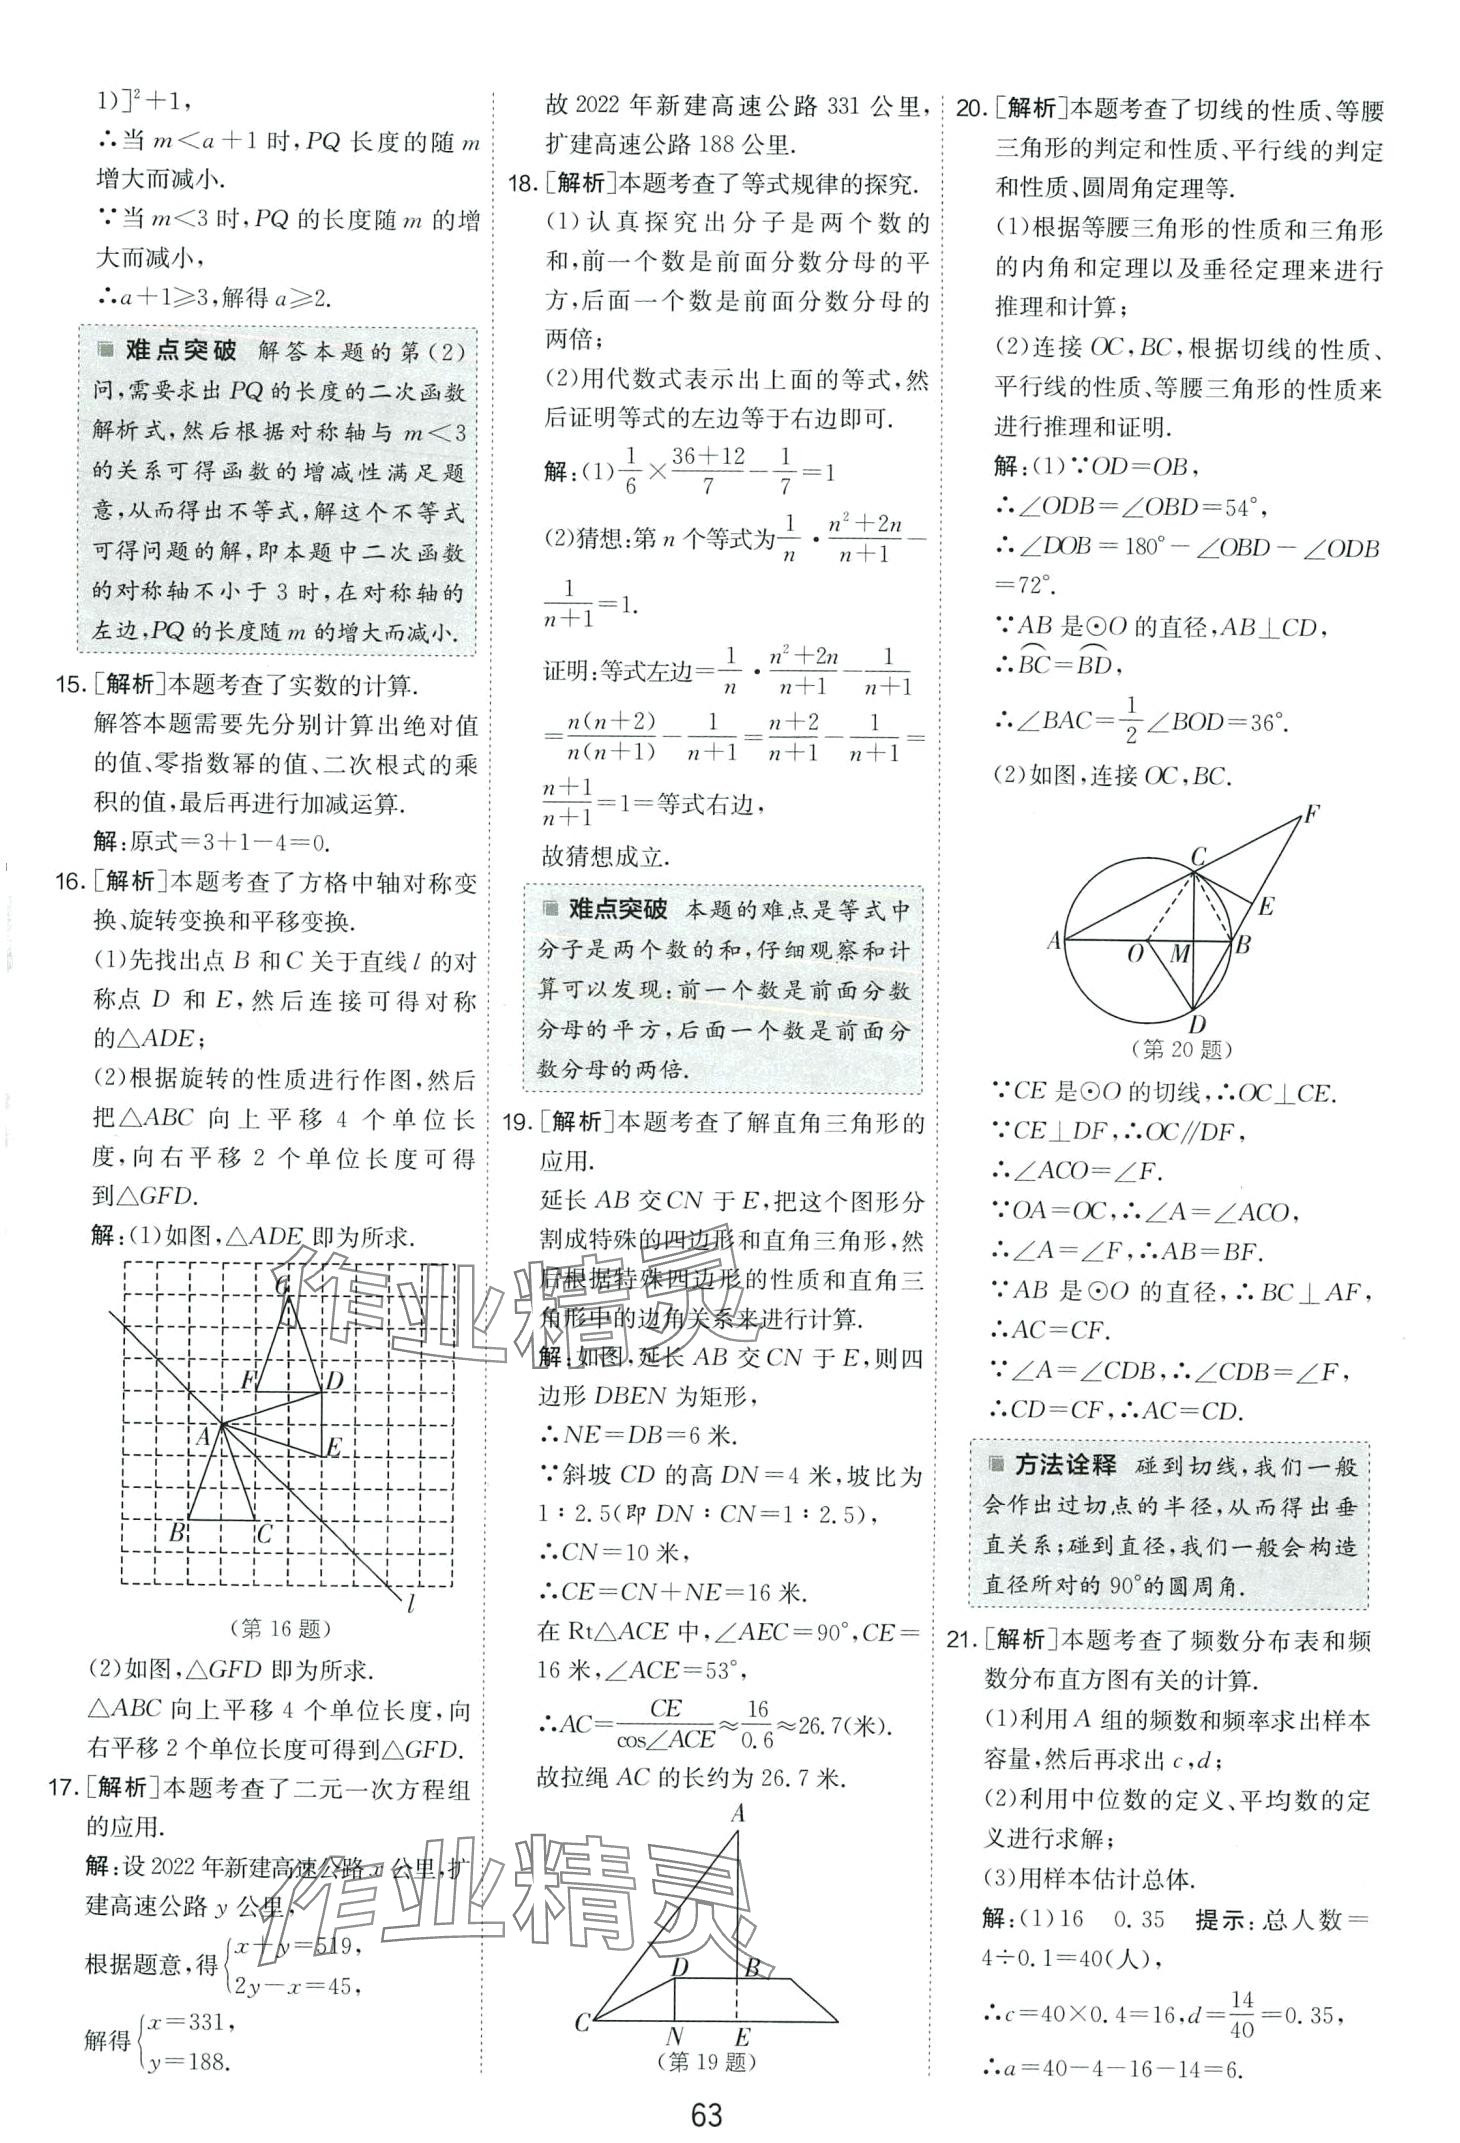 1)]²+1,
∴当 m<a+1 时,PQ 长度的随 m
增大而减小.
∵当 m<3 时,PQ 的长度随 m 的增
大而减小,
∴a+1≥3,解得 a≥2.
难点突破 解答本题的第(2)
问,需要求出 PQ 的长度的二次函数
解析式,然后根据对称轴与 m<3
的关系可得函数的增减性满足题
意,从而得出不等式,解这个不等式
可得问题的解,即本题中二次函数
的对称轴不小于 3 时,在对称轴的
左边,PQ 的长度随 m 的增大而减小.
15.[解析]本题考查了实数的计算.
解答本题需要先分别计算出绝对值
的值、零指数幂的值、二次根式的乘
积的值,最后再进行加减运算.
解:原式=3+1-4=0.
16.[解析]本题考查了方格中轴对称变
换、旋转变换和平移变换.
(1)先找出点 B 和 C 关于直线 l 的对
称点 D 和 E,然后连接可得对称
的△ADE;
(2)根据旋转的性质进行作图,然后
把△ABC 向上平移 4 个单位长
度,向右平移 2 个单位长度可得
到△GFD.
解:(1)如图,△ADE 即为所求.
G
F D
A
E
B C
l
(第 16 题)
(2)如图,△GFD 即为所求.
△ABC 向上平移 4 个单位长度,向
右平移 2 个单位长度可得到△GFD.
17.[解析]本题考查了二元一次方程组
的应用.
解:设 2022 年新建高速公路 x 公里,扩
建高速公路 y 公里,
根据题意,得{x+y=519,
2y-x=45,
解得{x=331,
y=188.
故 2022 年新建高速公路 331 公里,
扩建高速公路 188 公里.
18.[解析]本题考查了等式规律的探究.
(1)认真探究出分子是两个数的
和,前一个数是前面分数分母的平
方,后面一个数是前面分数分母的
两倍;
(2)用代数式表示出上面的等式,然
后证明等式的左边等于右边即可.
解:(1)1/6×(36+12)/7-1/7=1
(2)猜想:第 n 个等式为1/n·(n²+2n)/(n+1)-
1/(n+1)=1.
证明:等式左边=1/n·(n²+2n)/(n+1)-1/(n+1)
=n(n+2)/n(n+1)-1/(n+1)=(n+2)/(n+1)-1/(n+1)=
(n+1)/(n+1)=1=等式右边,
故猜想成立.
难点突破 本题的难点是等式中
分子是两个数的和,仔细观察和计
算可以发现:前一个数是前面分数
分母的平方,后面一个数是前面分
数分母的两倍.
19.[解析]本题考查了解直角三角形的
应用.
延长 AB 交 CN 于 E,把这个图形分
割成特殊的四边形和直角三角形,然
后根据特殊四边形的性质和直角三
角形中的边角关系来进行计算.
解:如图,延长 AB 交 CN 于 E,则四
边形 DBEN 为矩形,
∴NE=DB=6 米.
∵斜坡 CD 的高 DN=4 米,坡比为
1∶2.5(即 DN∶CN=1∶2.5),
∴CN=10 米,
∴CE=CN+NE=16 米.
在 Rt△ACE 中,∠AEC=90°,CE=
16 米,∠ACE=53°,
∴AC=CE/cos∠ACE≈16/0.6≈26.7(米).
故拉绳 AC 的长约为 26.7 米.
A
D B
C N E
(第 19 题)
20.[解析]本题考查了切线的性质、等腰
三角形的判定和性质、平行线的判定
和性质、圆周角定理等.
(1)根据等腰三角形的性质和三角形
的内角和定理以及垂径定理来进行
推理和计算;
(2)连接 OC,BC,根据切线的性质、
平行线的性质、等腰三角形的性质来
进行推理和证明.
解:(1)∵OD=OB,
∴∠ODB=∠OBD=54°,
∴∠DOB=180°-∠OBD-∠ODB
=72°.
∵AB 是⊙O 的直径,AB⊥CD,
∴BC=BD,
∴∠BAC=1/2∠BOD=36°.
(2)如图,连接 OC,BC.
F
C
E
A O M B
D
(第 20 题)
∵CE 是⊙O 的切线,∴OC⊥CE.
∵CE⊥DF,∴OC∥DF,
∴∠ACO=∠F.
∵OA=OC,∴∠A=∠ACO,
∴∠A=∠F,∴AB=BF.
∵AB 是⊙O 的直径,∴BC⊥AF,
∴AC=CF.
∵∠A=∠CDB,∴∠CDB=∠F,
∴CD=CF,∴AC=CD.
方法诠释 碰到切线,我们一般
会作出过切点的半径,从而得出垂
直关系;碰到直径,我们一般会构造
直径所对的 90°的圆周角.
21.[解析]本题考查了频数分布表和频
数分布直方图有关的计算.
(1)利用 A 组的频数和频率求出样本
容量,然后再求出 c,d;
(2)利用中位数的定义、平均数的定
义进行求解;
(3)用样本估计总体.
解:(1)16 0.35 提示:总人数=
4÷0.1=40(人),
∴c=40×0.4=16,d=14/40=0.35,
∴a=40-4-16-14=6.
作业精灵
作业精灵
63